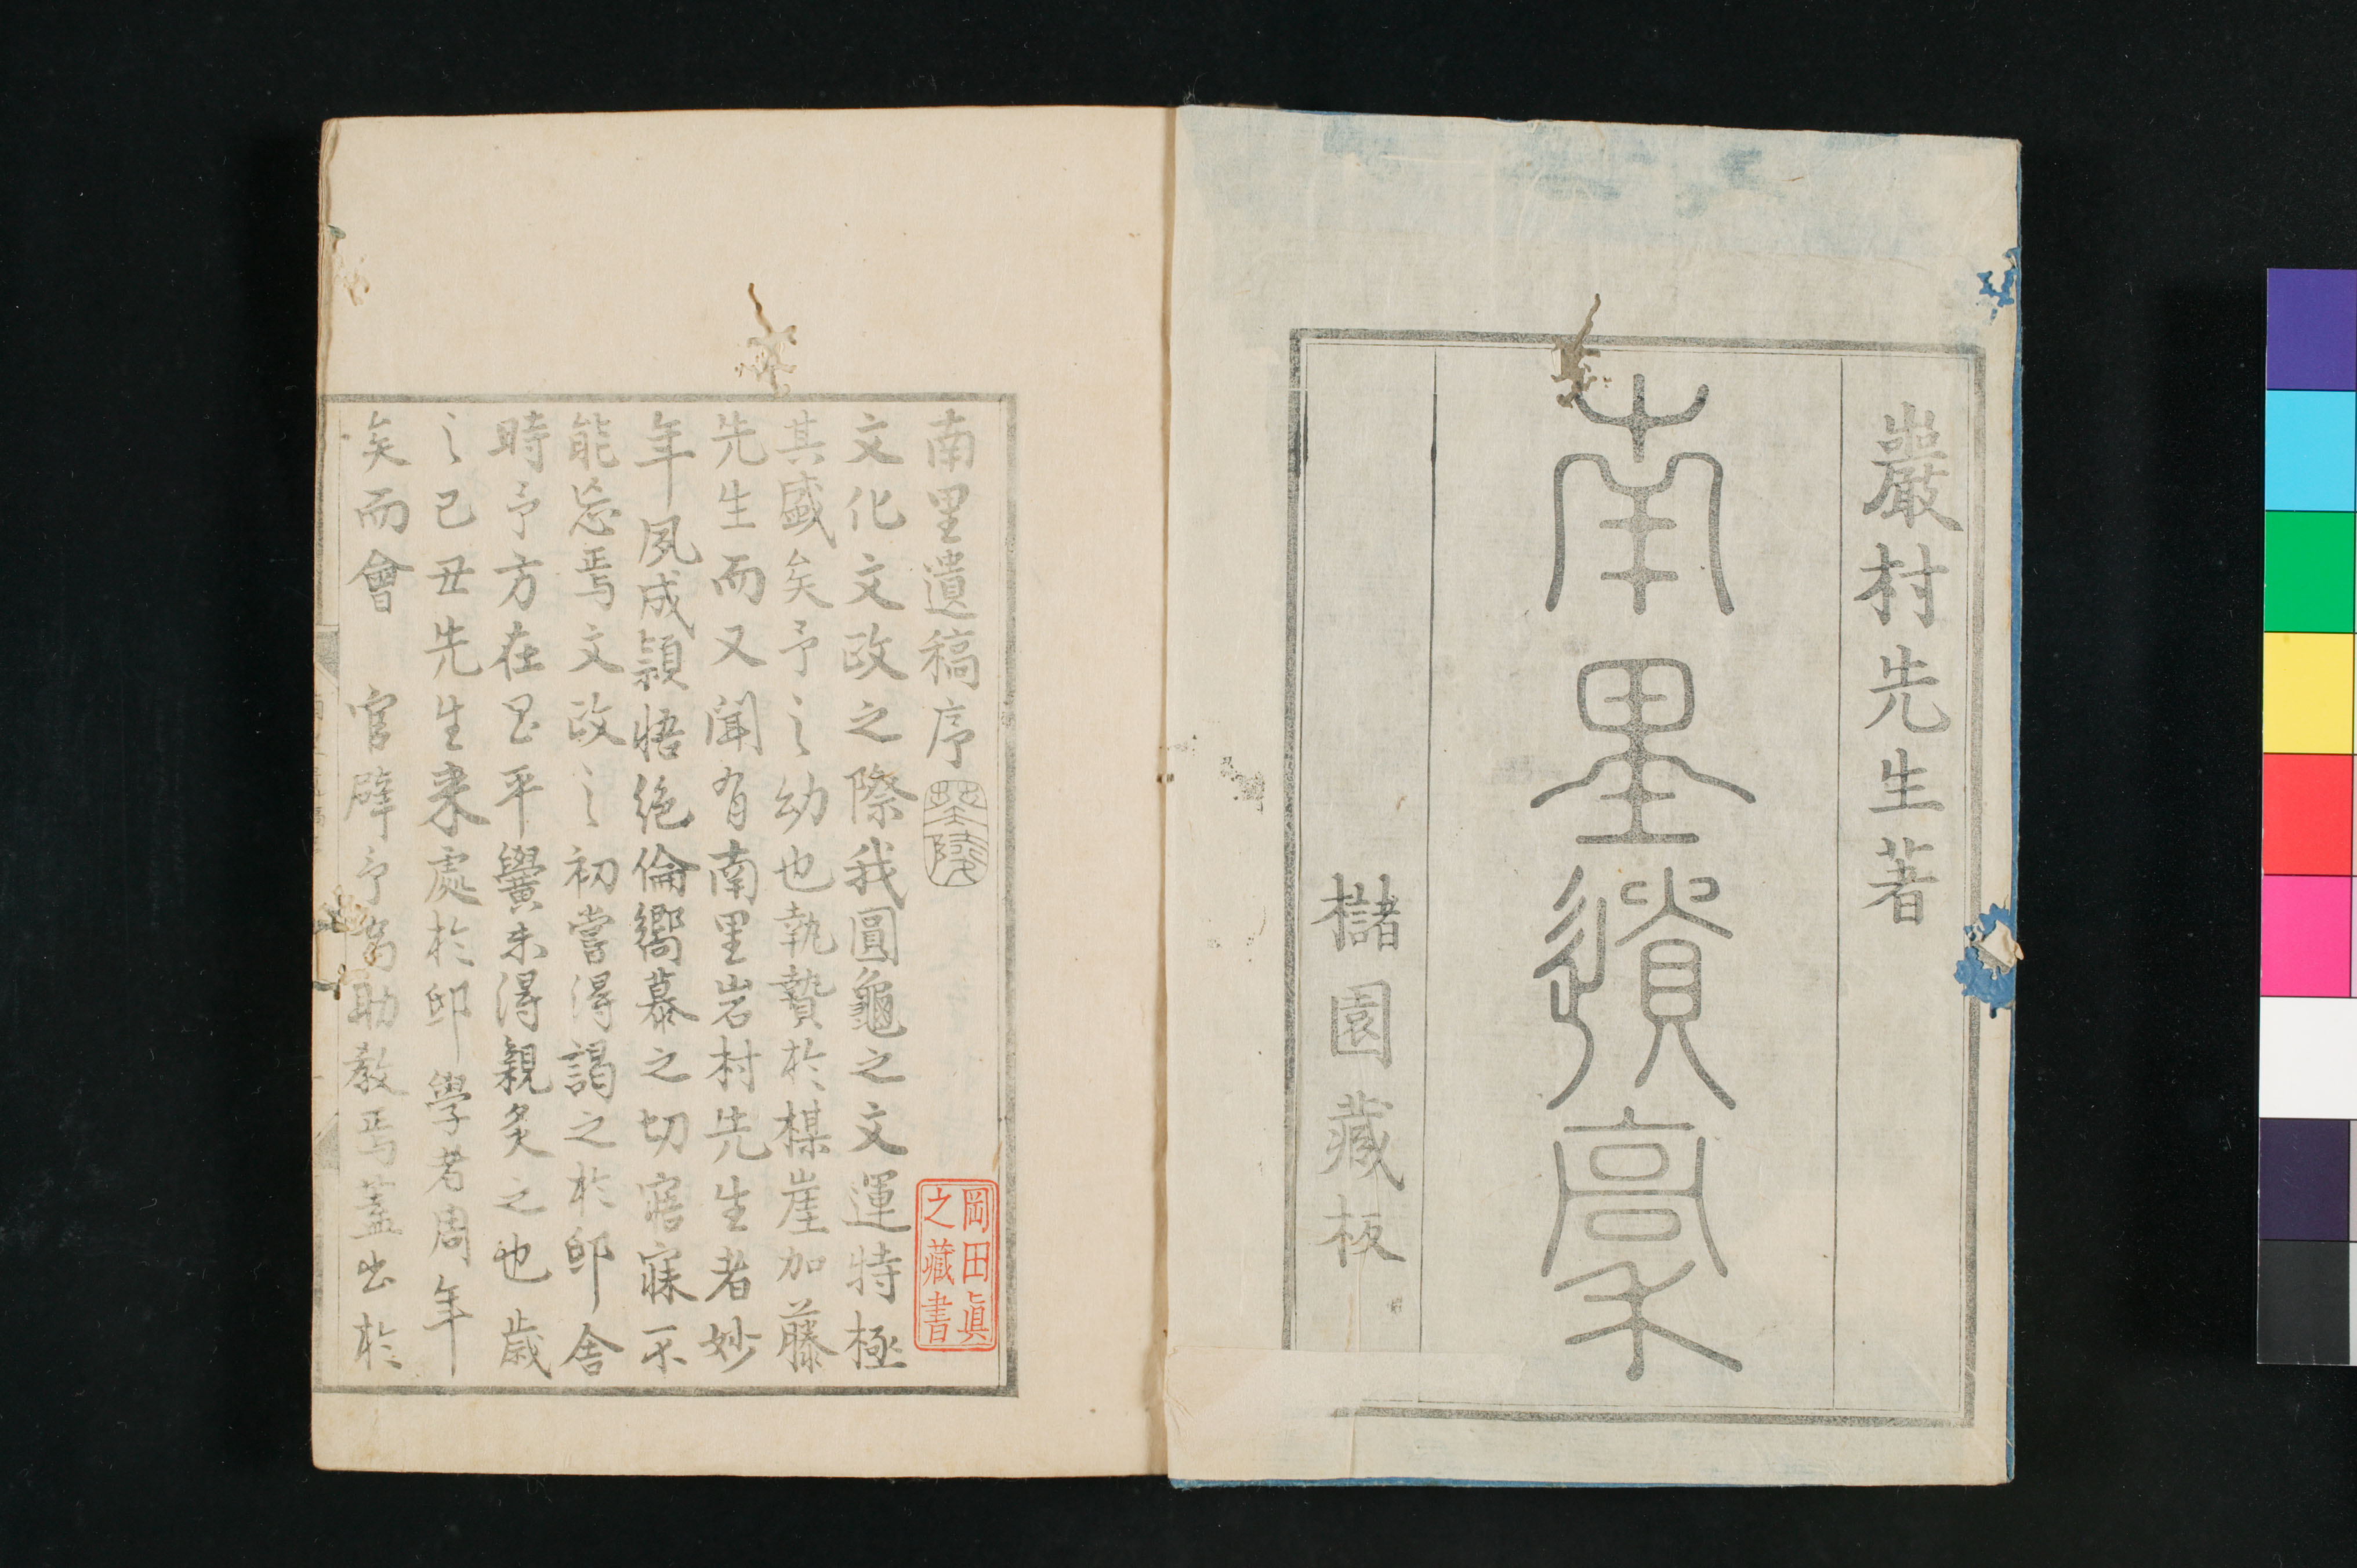 巖村先生著
南里遺稾
櫧園藏板
南里遺稿序
岡田眞
之藏書
文化文政之際我圓龜之文運特極
其盛矣予之幼也執贄於楳崖加藤
先生而又聞有南里岩村先生者妙
年夙成穎悟絶倫嚮慕之切寤寐不
能忘焉文政之初嘗得謁之於邸舎
時予方在昌平黌未得親炙之也歳
之己丑先生来處於邸學者周年
矣而會 官辟予為助教焉蓋出於